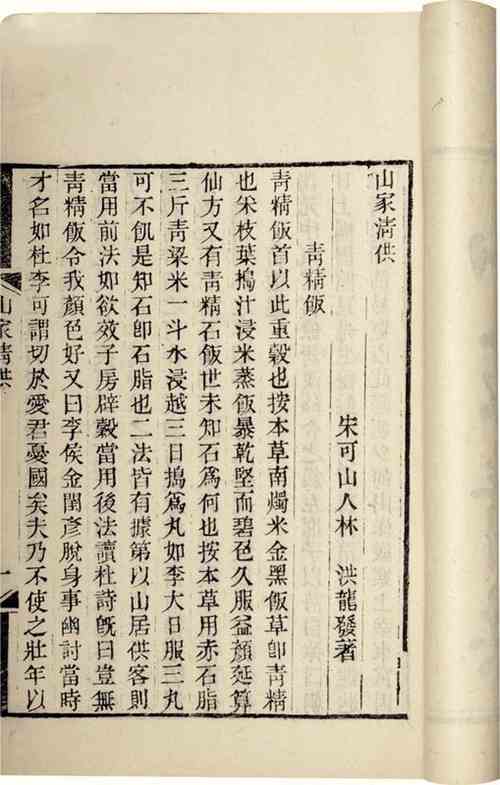 山家清供
宋可山人林 洪龍發著
青精飯
青精飯首以此重穀也按本草南燭米金黑飯草卽青精
也釆枝葉搗汁浸米蒸飯暴乾堅而碧色久服益顏延算
仙方又有青精石飯世未知石爲何也按本草用赤石脂
三斤青梁米一斗水浸越三日搗爲丸如李大日服三丸
可不飢是知石卽石脂也二法皆有據第以山居供客則
當用前法如欲效子房辟穀當用後法讀杜詩旣曰豈無
青精飯令我顏色好又曰李侯金閨彥脫身事幽討當時
才名如杜李可謂切於愛君憂國矣夫乃不使之壯年以
山家清供
一